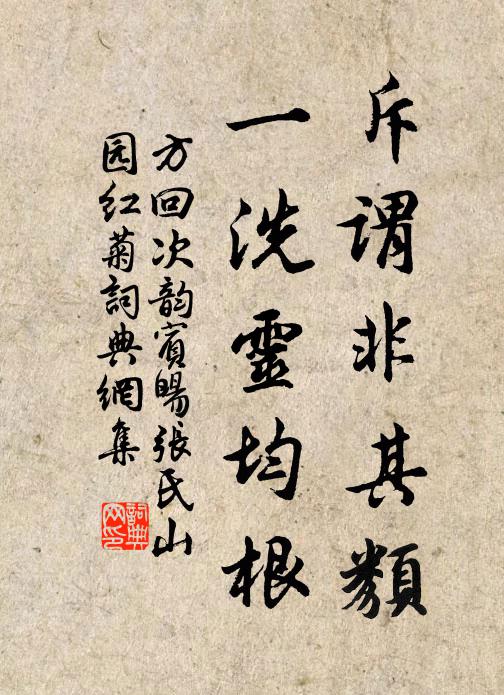 斥谓非其類
一洗靈均根
方回次韵賓暘張氏山
园红菊詞典網集
詞典网印